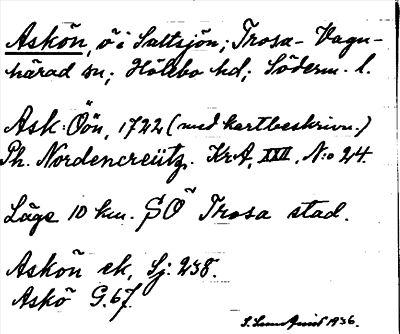 Askön, ö i Saltsjön; Trosa-Vagn-
härad sn; Hölebo hd; Söderm. l.
Ask-Öön, 1722 (med kartbeskrivn.)
Ph. Nordencreütz. KrA, XXII, N:o 24.
Läge 10 km. SO Trosa stad.
Askön ek, Sj: 238.
Askö G.67.
S. Lundqvist 1936.